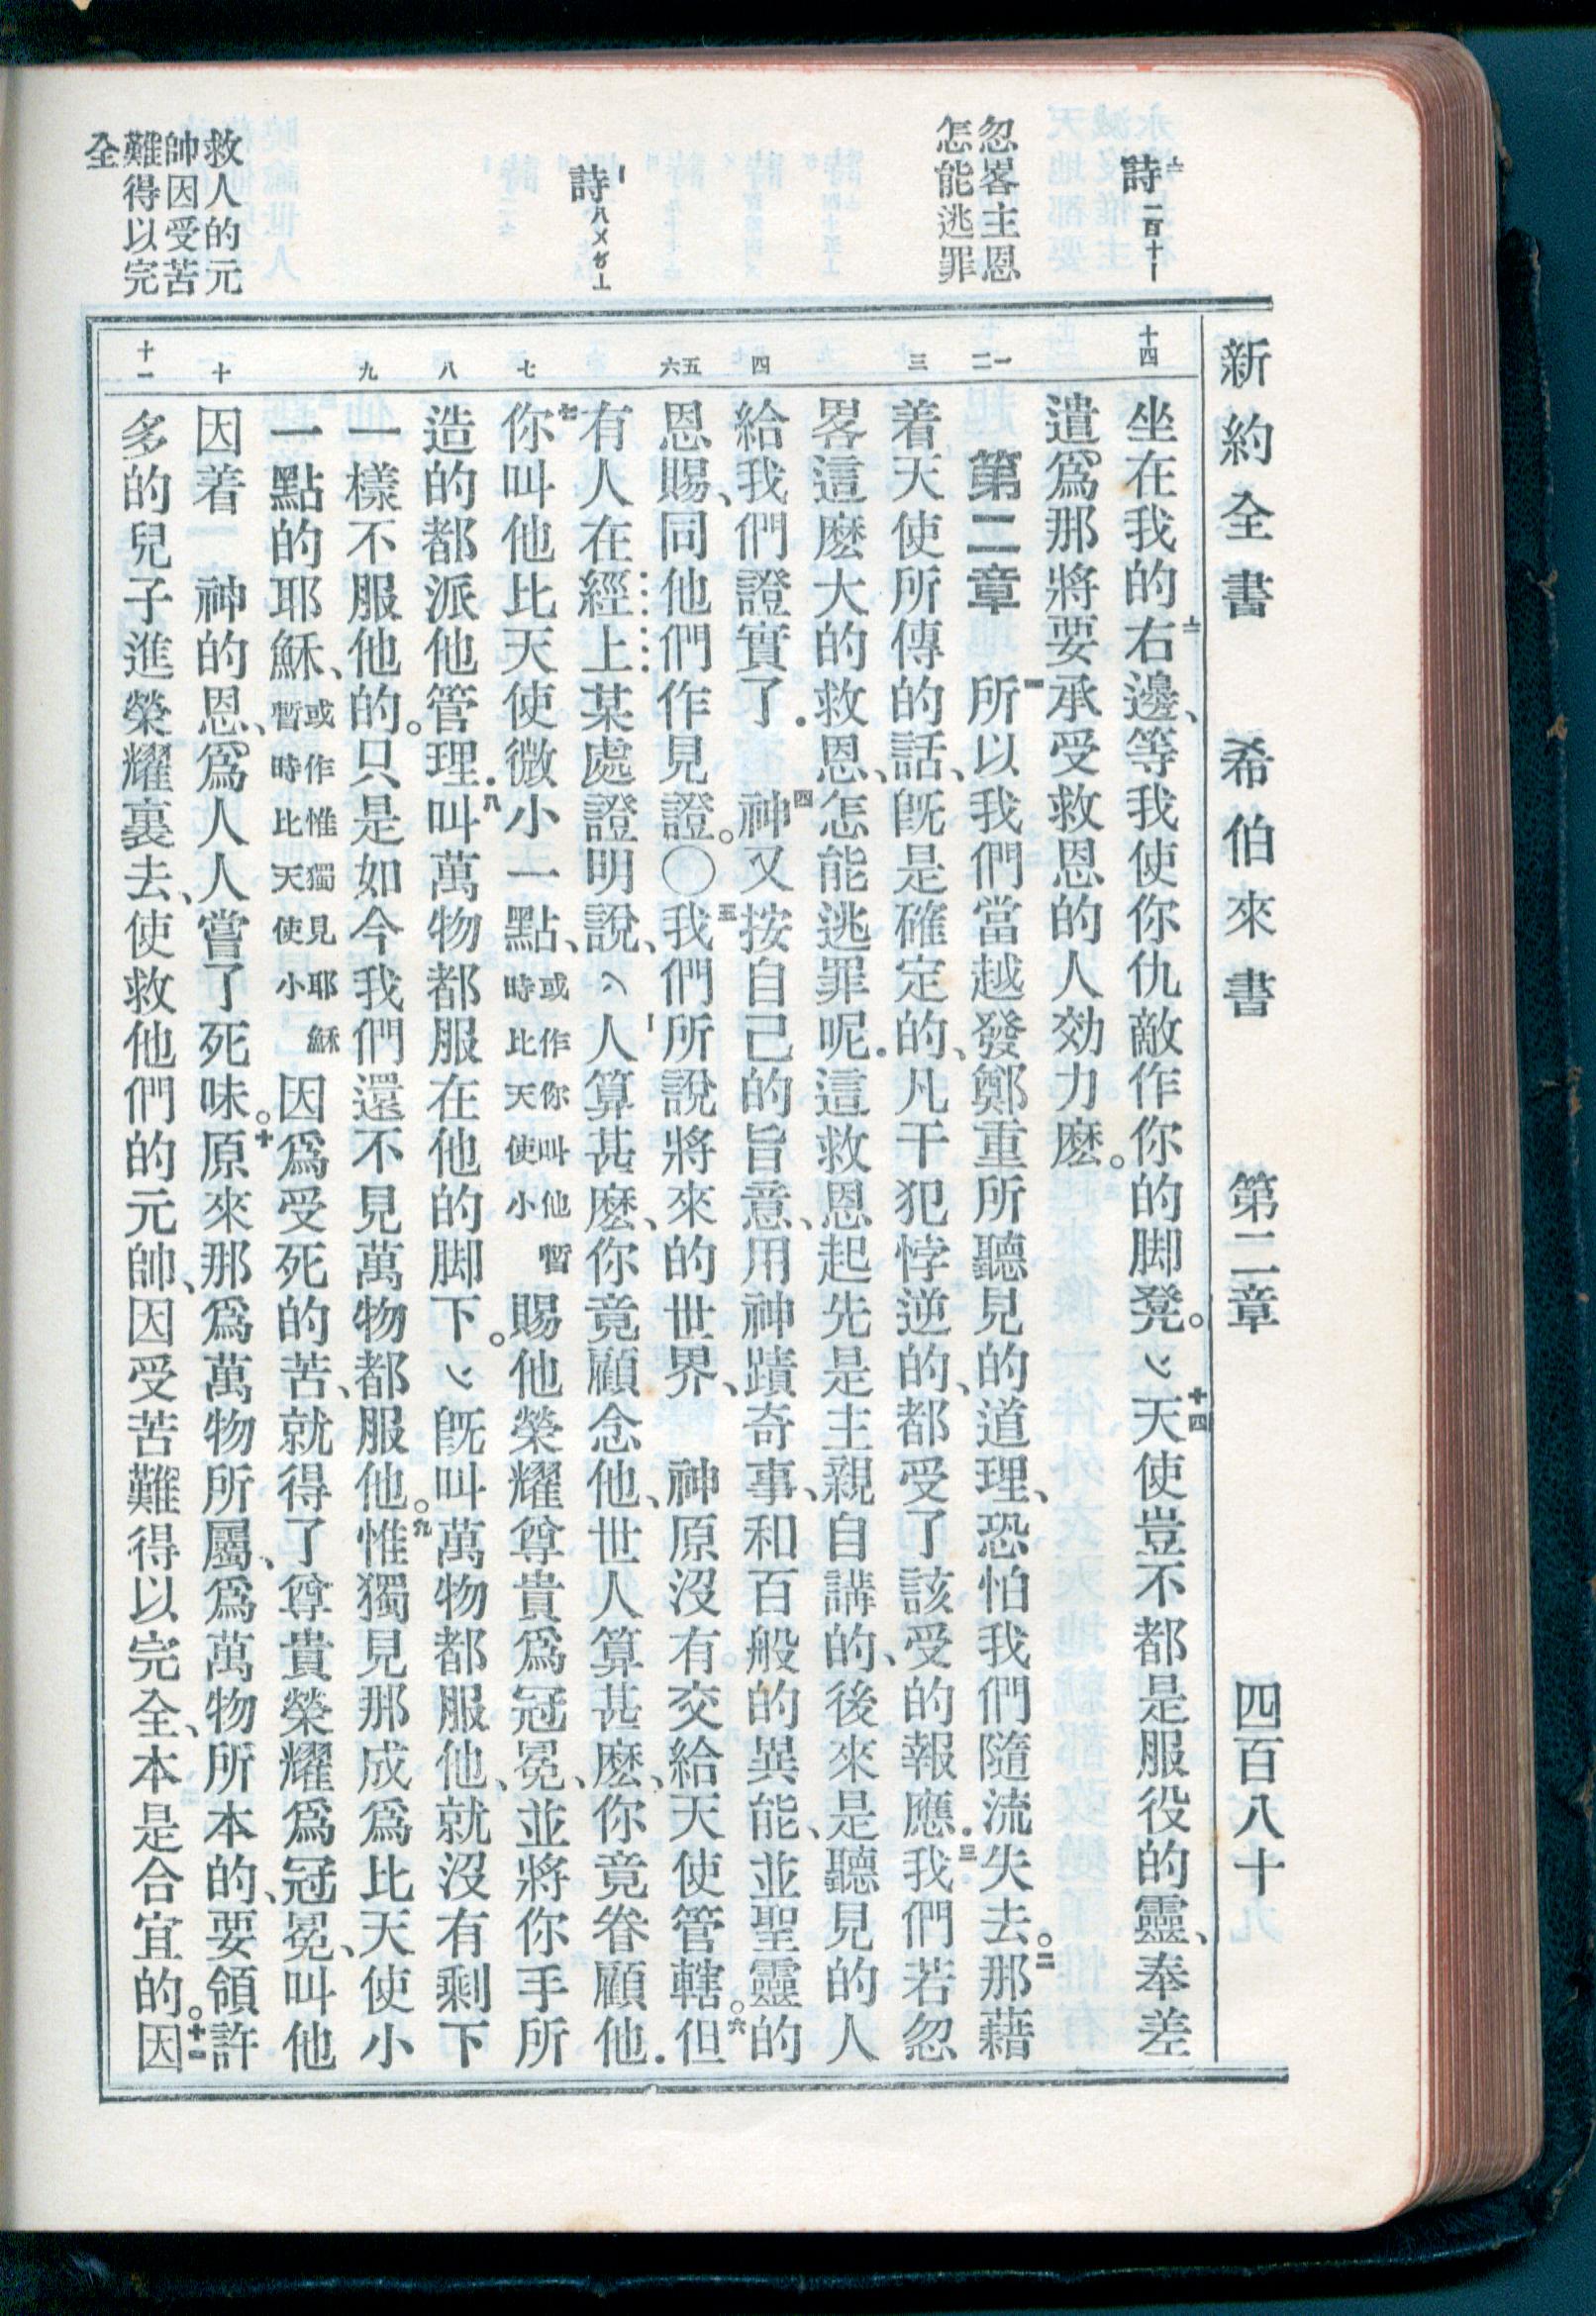 新約全書 希伯來書 第二章 四百八十
詩一百十〡
忽畧主恩
怎能逃罪
詩八〤〥〦
救人的元
帥因受苦
難得以完
全
十四 一 二 三 四 五 六 七 八 九 十 十一
坐在我的右邊、等我使你仇敵作你的脚凳。十四天使豈不都是服役的靈、奉差
遣、爲那將要承受救恩的人効力麽。
第二章 一所以我們當越發鄭重所聽見的道理、恐怕我們隨流失去。二那藉
着天使所傳的話、旣是確定的、凡干犯悖逆的、都受了該受的報應．三我們若忽
畧這麽大的救恩、怎能逃罪呢．這救恩起先是主親自講的、後來是聽見的人
給我們證實了．四神又按自己的旨意、用神蹟奇事、和百般的異能、並聖靈的
恩賜、同他們作見證。〇五我們所說將來的世界、 神原沒有交給天使管轄。六但
有人在經上某處證明說、人算甚麽、你竟顧念他、世人算甚麽、你竟眷顧他．
七你叫他比天使微小一點、或作你叫他暫時比天使小賜他榮耀尊貴爲冠冕、並將你手所
造的都派他管理．八叫萬物都服在他的脚下。旣叫萬物都服他、就沒有剩下
一樣不服他的。只是如今我們還不見萬物都服他。九惟獨見那成爲比天使小
一點的耶穌、或作惟獨見耶穌暫時比天使小因爲受死的苦、就得了尊貴榮耀爲冠冕、叫他
因着 神的恩、爲人人嘗了死味。十原來那爲萬物所屬、爲萬物所本的、要領許
多的兒子進榮耀裏去、使救他們的元帥、因受苦難得以完全、本是合宜的。十一因